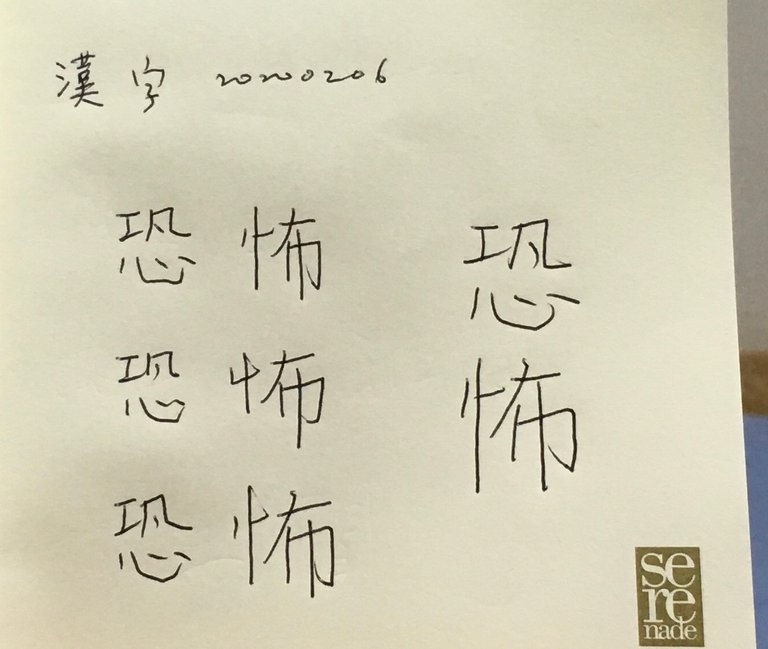 漢字 20200206
恐怖
恐怖
恐怖
恐
怖
se
re
nade